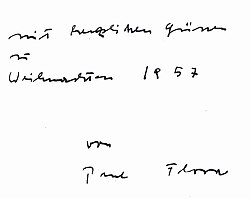 mit herzlichen Grüssen
zu
Weihnachten 1957
von
Paul Flora